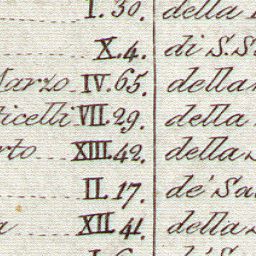 I. 30. della
X. 4. di S. S
Marzo IV. 65. della
ticelli VII. 29. della
rto XIII. 42. della
II. 17. de' Sa
a XII. 41. della